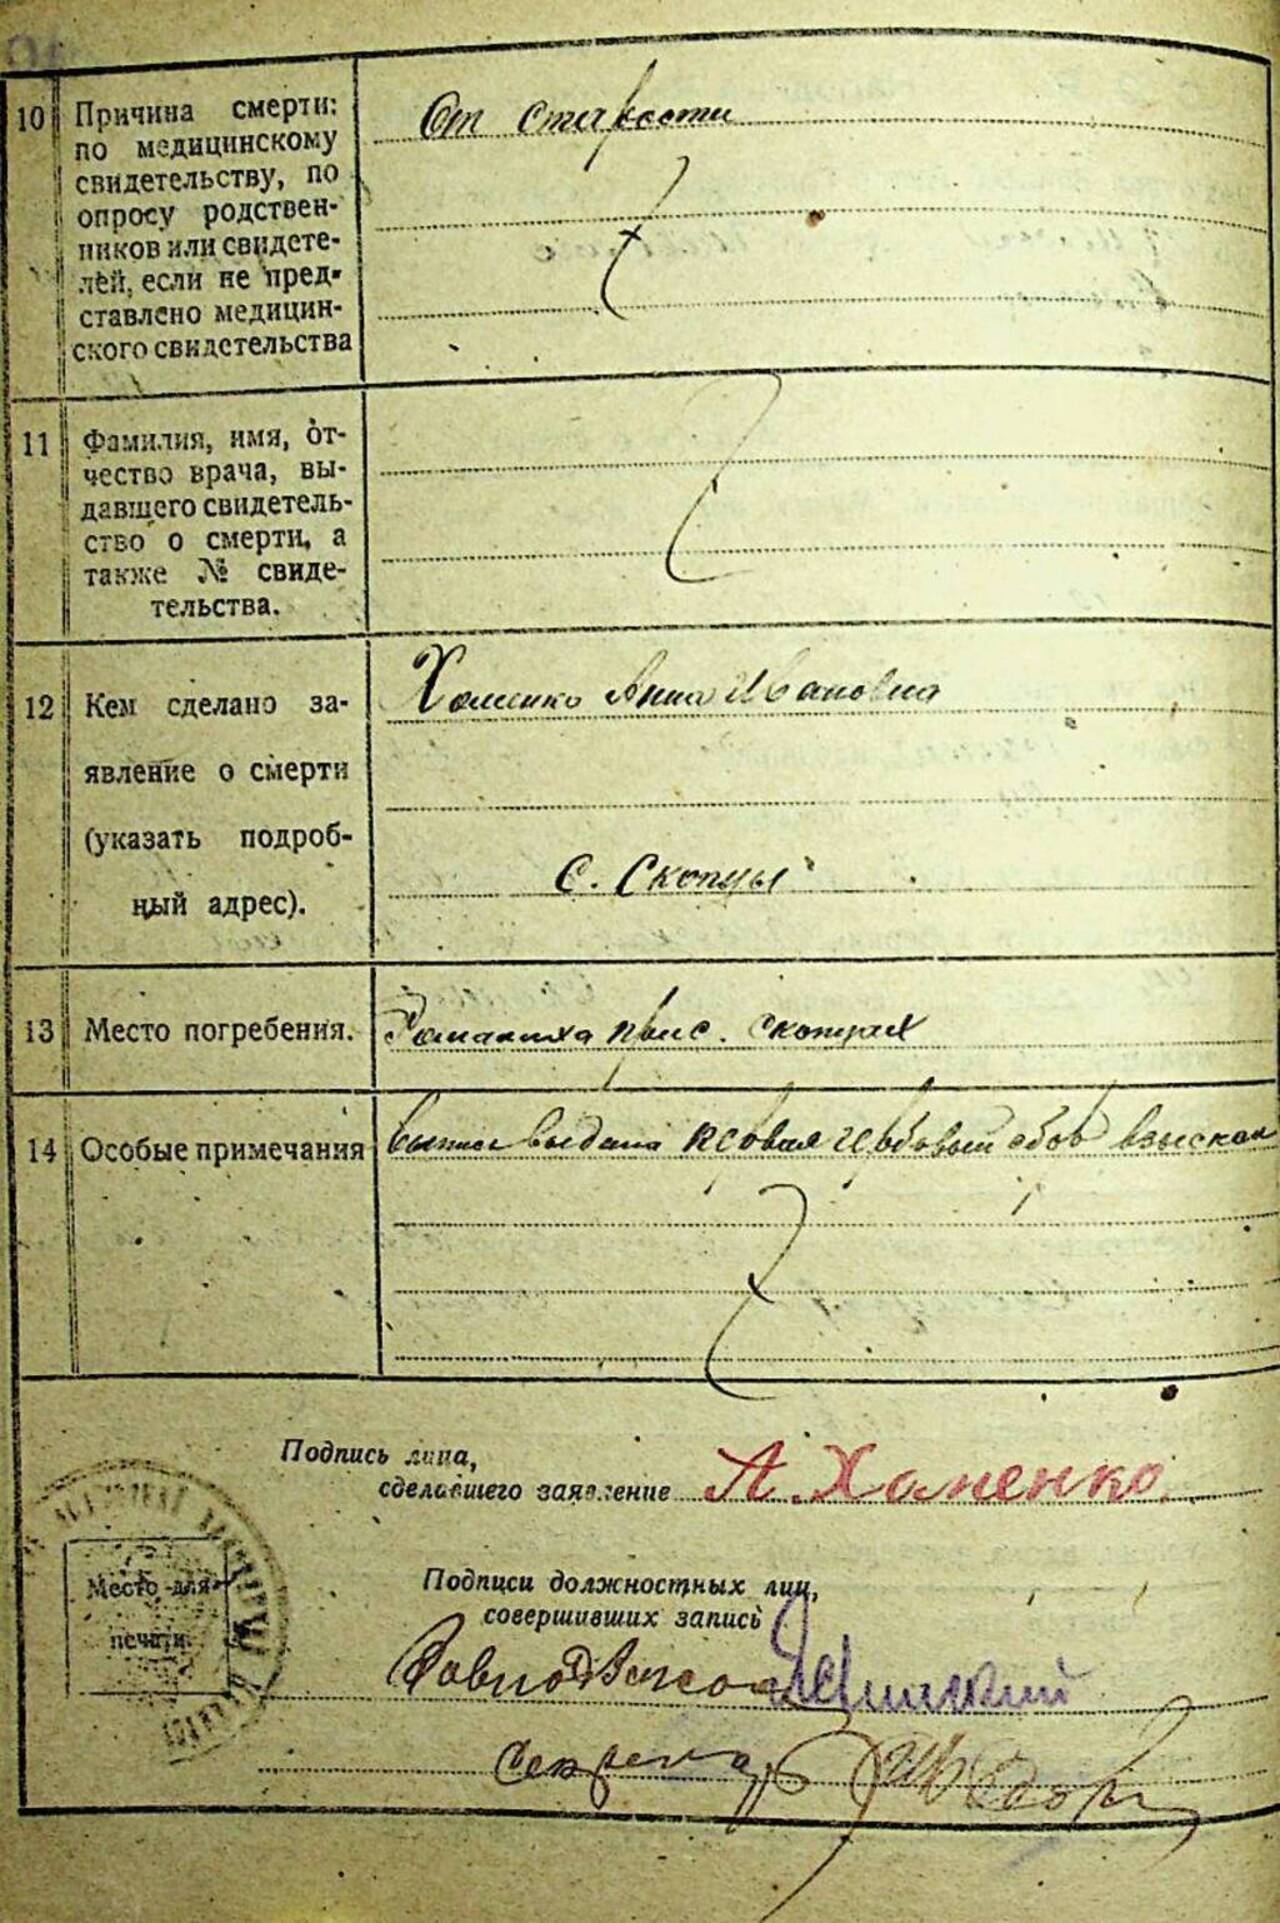 10 Причина смерти:
по медицинскому
свидетельству, по
опросу родствен-
ников или свидете-
лей, если не пред-
ставлено медицин-
ского свидетельства
От старости
11 Фамилия, имя, от-
чество врача, вы-
давшего свидетель-
ство о смерти, а
также № свиде-
тельства.
12 Кем сделано за-
явление о смерти
(указать подроб-
ный адрес).
Хоменко Анна Ивановна
с. Скопцы
13 Место погребения.
с. Скопцах
14 Особые примечания
выпись выдана гербовый сбор взыскан
Подпись лица,
сделавшего заявление А. Хоменко
Место для
печати.
Подписи должностных лиц,
совершивших запись
Секретарь